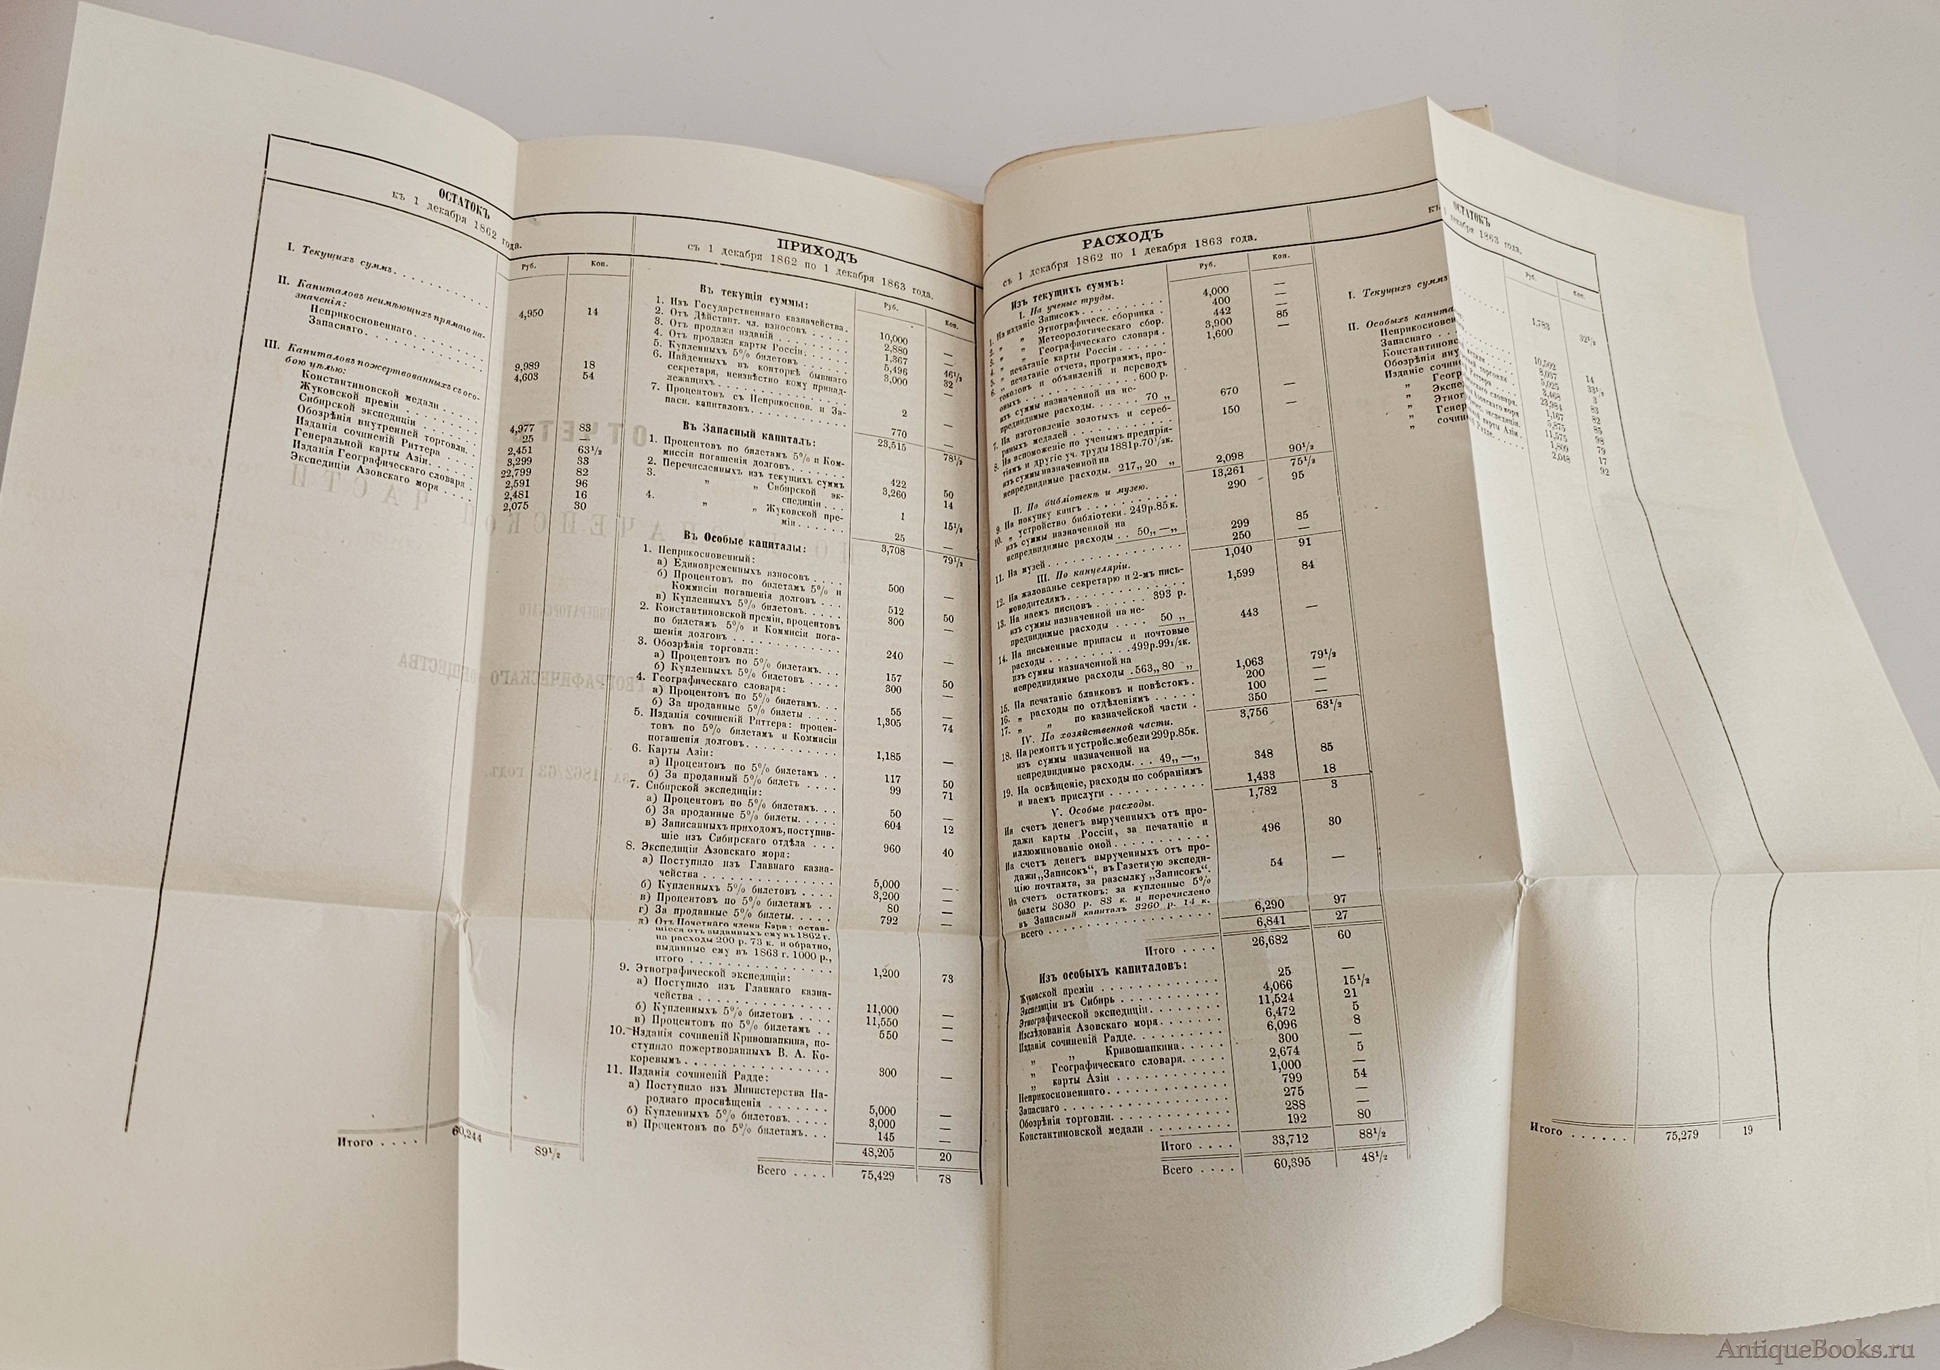 ОСТАТОКЪ
къ 1 декабря 1862 года.
Руб. Коп.
I. Текущихъ суммъ. 4,950 14
II. Капиталовъ неимѣющихъ прямаго на-
значенія:
Неприкосновеннаго. 9,989 18
Запаснаго. 4,603 54
III. Капиталовъ пожертвованныхъ съ осо-
бою цѣлью:
Константиновской медали 4,977 83
Жуковской преміи 25 —
Сибирской экспедиціи 2,451 63½
Обозрѣнія внутренней торговли. 3,299 33
Изданія сочиненій Риттера 22,799 82
Генеральной карты Азіи. 2,591 96
Изданія Географическаго словаря 2,481 16
Экспедиціи Азовскаго моря 2,075 30
Итого 60,244 89½
ПРИХОДЪ
съ 1 декабря 1862 по 1 декабря 1863 года.
Руб. Коп.
Въ текущія суммы:
1. Изъ Государственнаго казначейства. 10,000 —
2. Отъ Дѣйствит. чл. взносовъ 2,880 —
3. Отъ продажи изданій 1,367 46½
4. Отъ продажи карты Россіи. 5,496 32
5. Купленныхъ 5% билетовъ 3,000 —
6. Найденныхъ въ конторкѣ бывшаго
секретаря, неизвѣстно кому принад-
лежащихъ 2 —
7. Процентовъ съ Неприкоснов. и За-
пасн. капиталовъ. 770 —
23,515 78½
Въ Запасный капиталъ:
1. Процентовъ по билетамъ 5% и Ком-
миссіи погашенія долговъ. 422 50
2. Перечисленныхъ изъ текущихъ суммъ 3,260 14
3. „ „ Сибирской эк-
спедиціи 1 15½
4. „ „ Жуковской пре-
міи. 25 —
3,708 79½
Въ Особые капиталы:
1. Неприкосновенный:
а) Единовременныхъ взносовъ 500 —
б) Процентовъ по билетамъ 5% и
Коммисіи погашенія долговъ 512 50
в) Купленныхъ 5% билетовъ. 300 —
2. Константиновской преміи, процентовъ
по билетамъ 5% и Коммисіи пога-
шенія долговъ 240 —
3. Обозрѣнія торговли:
а) Процентовъ по 5% билетамъ. 157 50
б) Купленныхъ 5% билетовъ 300 —
4. Географическаго словаря:
а) Процентовъ по 5% билетамъ. 55 —
б) За проданные 5% билеты 1,305 74
5. Изданія сочиненій Риттера: процен-
товъ по 5% билетамъ и Коммисіи
погашенія долговъ. 1,185 —
6. Карты Азіи:
а) Процентовъ по 5% билетамъ 117 50
б) За проданный 5% билетъ 99 71
7. Сибирской экспедиціи:
а) Процентовъ по 5% билетамъ. 50 —
б) За проданные 5% билеты. 604 12
в) Записанныхъ приходомъ, поступив-
шіе изъ Сибирскаго отдѣла 960 40
8. Экспедиціи Азовскаго моря:
а) Поступило изъ Главнаго казна-
чейства 5,000 —
б) Купленныхъ 5% билетовъ 3,200 —
в) Процентовъ по 5% билетамъ 80 —
г) За проданные 5% билеты. 792 —
д) Отъ Почетнаго члена Бэра: остав-
шіеся отъ выданныхъ ему въ 1862 г.
на расходы 200 р. 73 к. и обратно,
выданные ему въ 1863 г. 1000 р.,
итого 1,200 73
9. Этнографической экспедиціи:
а) Поступило изъ Главнаго казна-
чейства 11,000 —
б) Купленныхъ 5% билетовъ 11,550 —
в) Процентовъ по 5% билетамъ 550 —
10. Изданія сочиненій Кривошапкина, по-
ступило пожертвованныхъ В. А. Ко-
коревымъ 300 —
11. Изданія сочиненій Радде:
а) Поступило изъ Министерства На-
роднаго просвѣщенія 5,000 —
б) Купленныхъ 5% билетовъ. 3,000 —
в) Процентовъ по 5% билетамъ. 145 —
48,205 20
Всего 75,429 78
РАСХОДЪ
съ 1 декабря 1862 по 1 декабря 1863 года.
Руб. Коп.
Изъ текущихъ суммъ:
I. На ученые труды.
1. На изданіе Записокъ. 4,000 —
2. „ „ Этнографическ. сборника 400 —
3. „ „ Метеорологическаго сбор. 442 85
4. „ „ Географическаго словаря 3,900 —
5. „ печатаніе карты Россіи 1,600
6. „ печатаніе отчета, программъ, про-
токоловъ и объявленій и переводъ
оныхъ 600 р.
изъ суммы назначенной на не-
предвидимые расходы. 70 „ 670 —
7. На изготовленіе золотыхъ и сереб-
ряныхъ медалей 150 —
8. На вспоможеніе по ученымъ предпрія-
тіямъ и другіе уч. труды 1881р.70½к.
изъ суммы назначенной на
непредвидимые расходы. 217„ 20 „ 2,098 90½
13,261 75½
II. По библіотекѣ и музею.
9. На покупку книгъ 290 95
10. „ устройство библіотеки. 249р.85к.
изъ суммы назначенной на
непредвидимые расходы 50„ —„ 299 85
11. На музей 250 —
1,040 91
III. По канцеляріи.
12. На жалованье секретарю и 2-мъ пись-
моводителямъ 1,599 84
13. На наемъ писцовъ 393 р.
изъ суммы назначенной на не-
предвидимые расходы 50 „ 443 —
14. На письменные припасы и почтовые
расходы 499р.99½к.
изъ суммы назначенной на
непредвидимые расходы 563„ 80 „ 1,063 79½
15. На печатаніе бланковъ и повѣстокъ. 200 —
16. „ расходы по отдѣленіямъ 100 —
17. „ „ по казначейской части 350 —
3,756 63½
IV. По хозяйственной части.
18. На ремонтъ и устройс. мебели 299р.85к.
изъ суммы назначенной на
непредвидимые расходы. 49„ —„ 348 85
19. На освѣщеніе, расходы по собраніямъ
и наемъ прислуги 1,433 18
1,782 3
V. Особые расходы.
На счетъ денегъ вырученныхъ отъ про-
дажи карты Россіи, за печатаніе и
иллюминованіе оной 496 30
На счетъ денегъ вырученныхъ отъ про-
дажи „Записокъ“, въ Газетную экспеди-
цію почтамта, за разсылку „Записокъ“. 54 —
На счетъ остатковъ: за купленные 5%
билеты 3030 р. 83 к. и перечислено
въ Запасный капиталъ 3260 р. 14 к.
всего 6,290 97
6,841 27
Итого 26,682 60
Изъ особыхъ капиталовъ:
Жуковской преміи 25 —
Экспедиціи въ Сибирь 4,066 15½
Этнографической экспедиціи. 11,524 21
Изслѣдованія Азовскаго моря. 6,472 5
Изданія сочиненій Радде. 6,096 8
„ „ Кривошапкина. 300 —
„ Географическаго словаря. 2,674 5
„ карты Азіи 1,000 —
Неприкосновеннаго. 799 54
Запаснаго 275 —
Обозрѣнія торговли. 288 —
Константиновской медали 192 80
Итого 33,712 88½
Всего 60,395 48½
ОСТАТОКЪ
къ 1 декабря 1863 года.
Руб. Коп.
I. Текущихъ суммъ 1,783 32½
II. Особыхъ капита
Неприкоснове 10,502 14
Запаснаго 8,037 33½
Константинов 5,025 3
Обозрѣнія вну торговли 3,468 83
Изданіе сочине Риттера 23,984 82
„ Геогр словаря. 1,167 85
„ Экспе Азовскаго моря 5,875 98
„ Этног экспедиціи. 11,575 79
„ Генер карты Азіи 1,809 17
„ сочин Радде 2,048 92
Итого 75,279 19
AntiqueBooks.ru